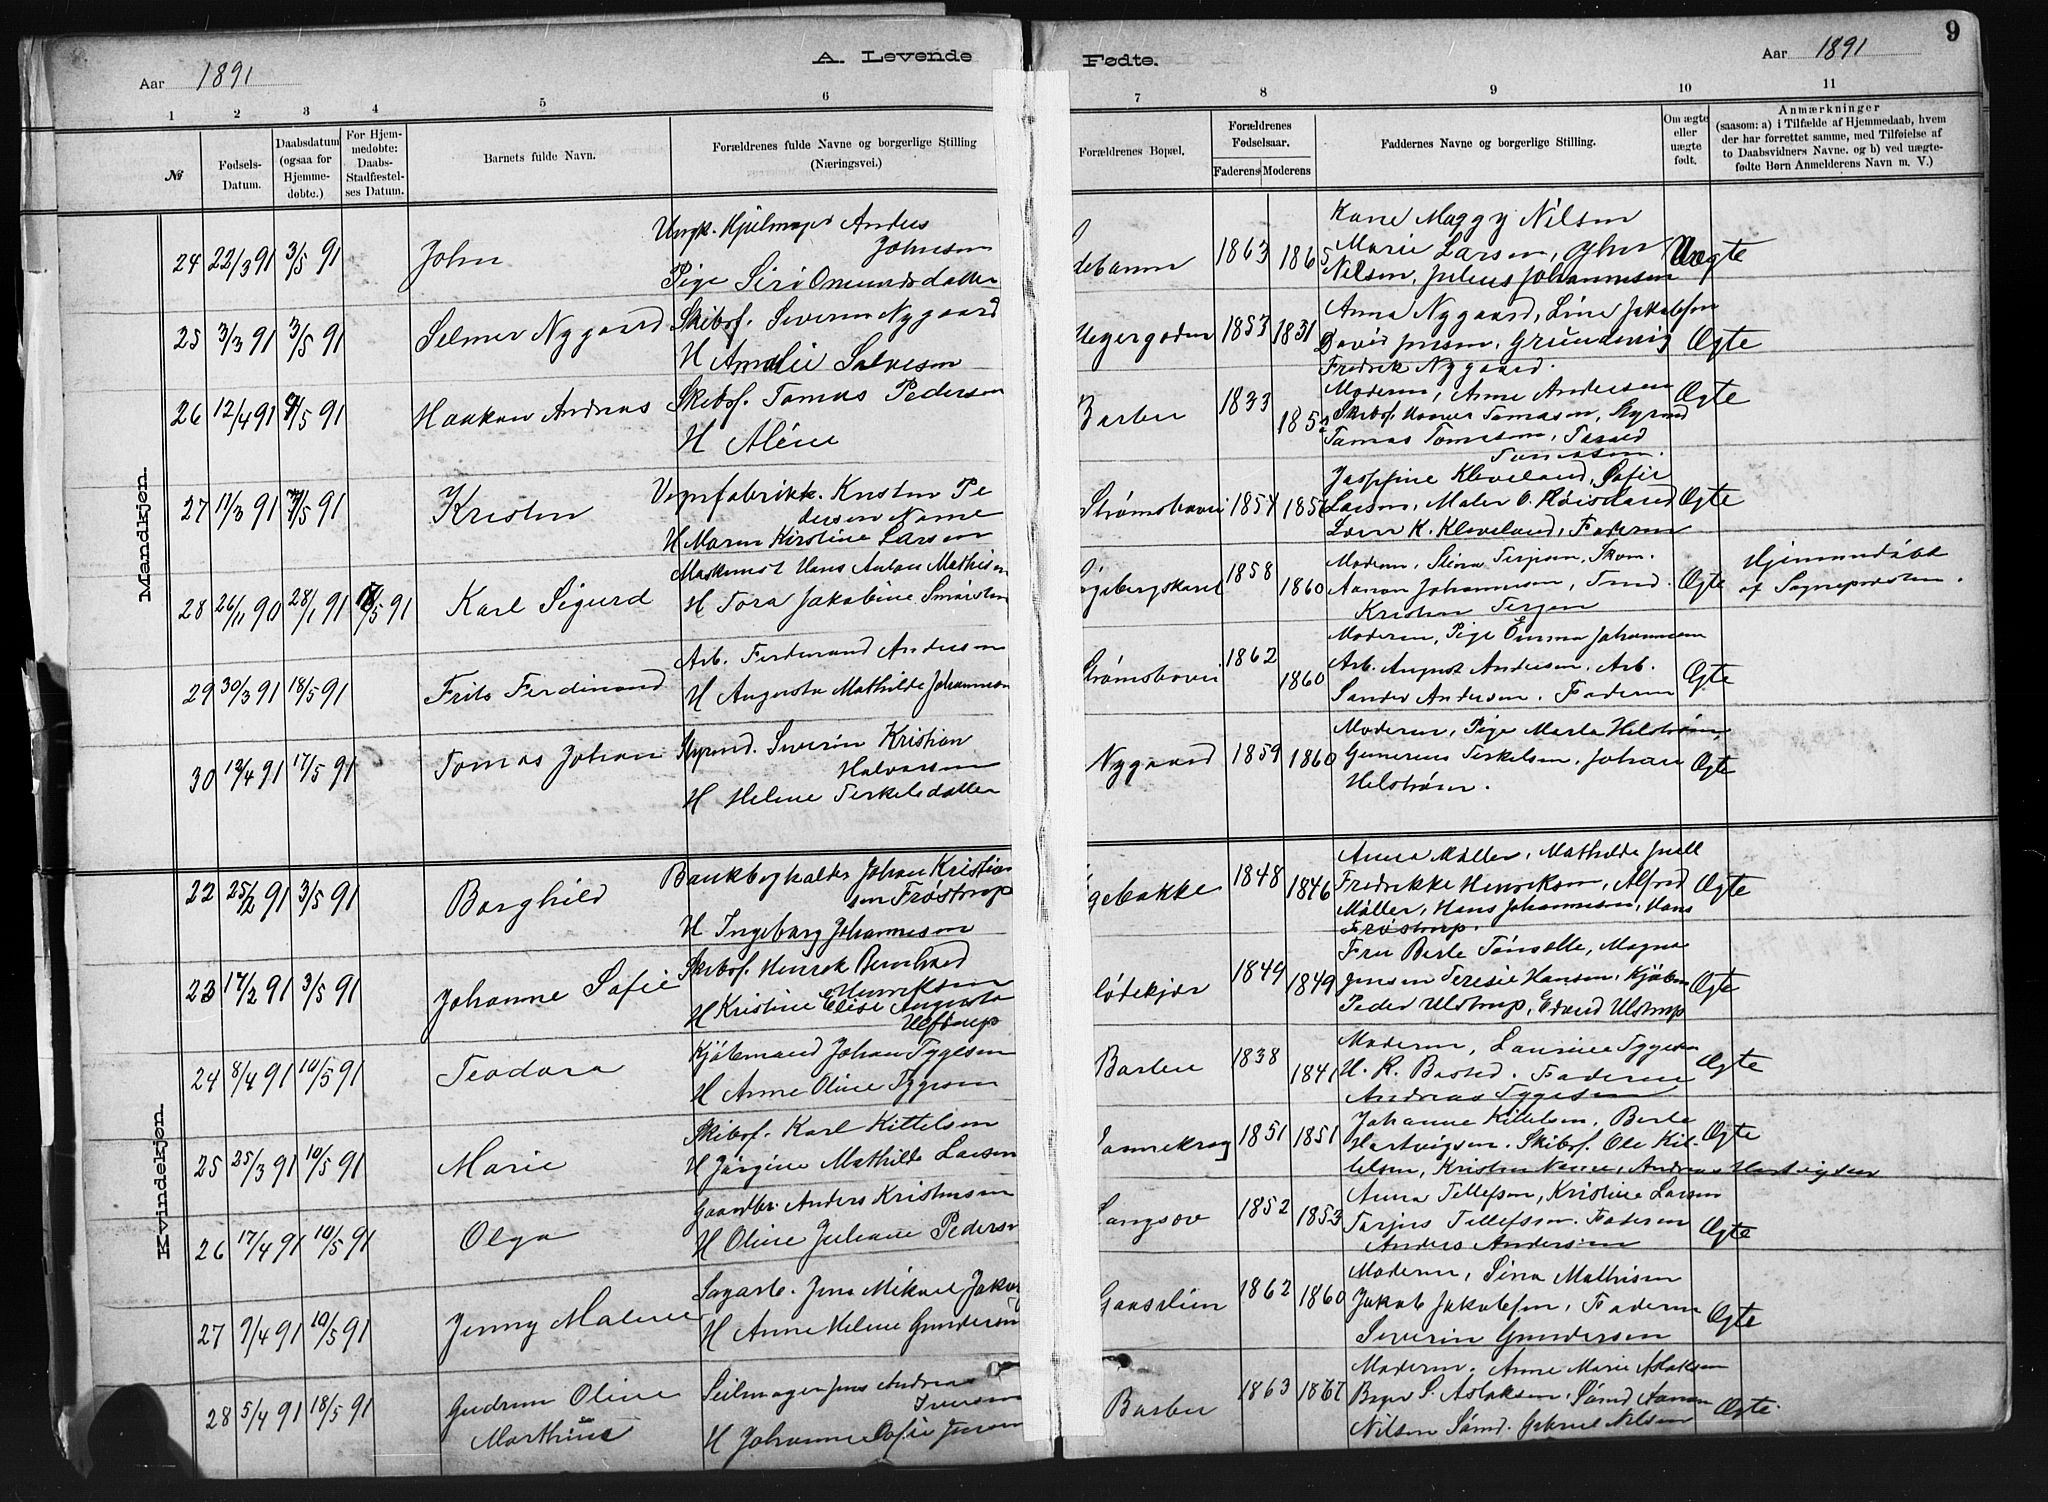 A. Levende Fødte.
9
Aar 1891
Aar 1891
1 2 3 4 5 6 7 8 9 10 11
№
Fødsels-
Datum.
Daabsdatum
(ogsaa for
Hjemme-
døbte.)
For Hjem-
medøbte:
Daabs-
Stadfæstel-
ses Datum.
Barnets fulde Navn.
Forældrenes fulde Navne og borgerlige Stilling
(Næringsvei.)
Forældrenes Bopæl.
Forældrenes
Fødselsaar.
Faderens Moderens
Faddernes Navne og borgerlige Stilling.
Om ægte
eller
uægte
født.
Anmærkninger
(saasom: a) i Tilfælde af Hjemmedaab, hvem
der har forrettet samme, med Tilføielse af
to Daabsvidners Navne. og b) ved uægte-
fødte Børn Anmelderens Navn m. V.)
Mandkjøn.
24 22/3 91 3/5 91 John
Ungk. Anders
Johnsen
Pige Siri Omundsdatter
1863 1865
Karie Maggy Nilsen
Marie Larsen, John
Nilsen, Julius Johannesen
Uægte
25 3/3 91 3/5 91 Selmer Nygaard
Skibsf. Severin Nygaard
H Amalie Salvesen
1853 1831
Anna Nygaard, Line Jakobsen
David Jensen, Grundevig
Fredrik Nygaard.
Ægte
26 12/4 91 /5 91 Haakon Andreas
Skibsf. Tomas Pedersen
H Aléne
Barbu 1833
Moderen, Anne Andersen
Skibsf. Tomasen, Styrmd
Tomas Tomesen, Tarald
Tomessen.
Ægte
27 11/3 91 /5 91 Kristen
Kristen Pe
dersen Name
H Maren Kirstine Larsen
Strømsbuvei 1854
Josephine Kleveland, Sofie
Larsen, Maler O. Røisland
K. Kleveland, Faderen
Ægte
28 26/11 90 28/1 91 /5 91 Karl Sigurd
Maskinist Hans Anton Mathisen
H Tora Jakobine
1858 1860
Moderen, Stina Terjesen,
Aanon Johannesen,
Kristen Terjesen
Ægte
Hjemmedøbt
af Sognepresten.
29 30/3 91 18/5 91 Frits Ferdinand
Arb. Ferdinand Andersen
H Augusta Mathilde Johannesen
Strømsbuvei 1862 1860
Moderen, Pige Emma Johannesen
Arb. August Andersen. Arb.
Sander Andersen. Faderen
Ægte
30 13/4 91 17/5 91 Tomas Johan
Styrmd. Severin Kristian
Halvorsen
H Helene Terkelsdatter
Nygaard 1859 1860
Moderen, Pige Marta Helstrøm,
Terkelsen. Johan
Helstrøm.
Ægte
Kvindekjøn.
22 25/2 91 3/5 91 Borghild
Bankbogholder Johan Kristian
sen Frøstrup
H Ingeborg Johannesen
1848 1846
Anna Møller, Mathilde Juell
Fredrikke Henriksen, Alfred
Møller, Hans Johannesen, Hans
Frøstrup.
Ægte
23 17/2 91 3/5 91 Johanne Sofie
Skibsf. Henrik Bernhard
Henriksen
H Kristine Elise Augusta
Ulstrup
1849 1849
Fru Berte Magna
Jensen Teresie Hansen, Kjøbm
Peder Ulstrup, Edvard Ulstrup
Ægte
24 8/4 91 10/5 91 Teodora
Kjøbmand Johan Tygesen
H Anne Oline Tygesen
Barbu 1838 1841
Moderen, Laurine Tygesen
H. R. Bested. Faderen
Andreas Tygesen
Ægte
25 25/3 91 10/5 91 Marie
Skibsf. Karl Kittelsen
H Jørgine Mathilde Larsen
1851 1851
Johanne Kittelsen, Berte
Hartvigsen. Skibsf. Ole Kit-
telsen, Kristen Name, Andreas Hartvigsen
Ægte
26 17/4 91 10/5 91 Olga
Gaardbr. Anders Kristensen
H Oline Juliane Pedersen
Langsæv 1852 1853
Anna Tellefsen, Kristine Larsen
Terjus Tellefsen. Faderen
Anders Andersen
Ægte
27 7/4 91 10/5 91 Jenny Malene
Sagarb. Jens Mikael Jakobs
H Anne Helene Gundersen
1862 1860
Moderen, Sina Mathisen
Jakob Jakobsen, Faderen
Severin Gundersen
Ægte
28 5/4 91 18/5 91 Gudrun Oline
Marthine
Seilmager Jens Andreas
Iversen
H Johanne Sofie Jensen
Barbu 1863 1867
Moderen. Anne Marie Aslaksen
S. Aslaksen, Sømd Aanon
Nilsen Sømd. Gabriel Nilsen
Ægte.